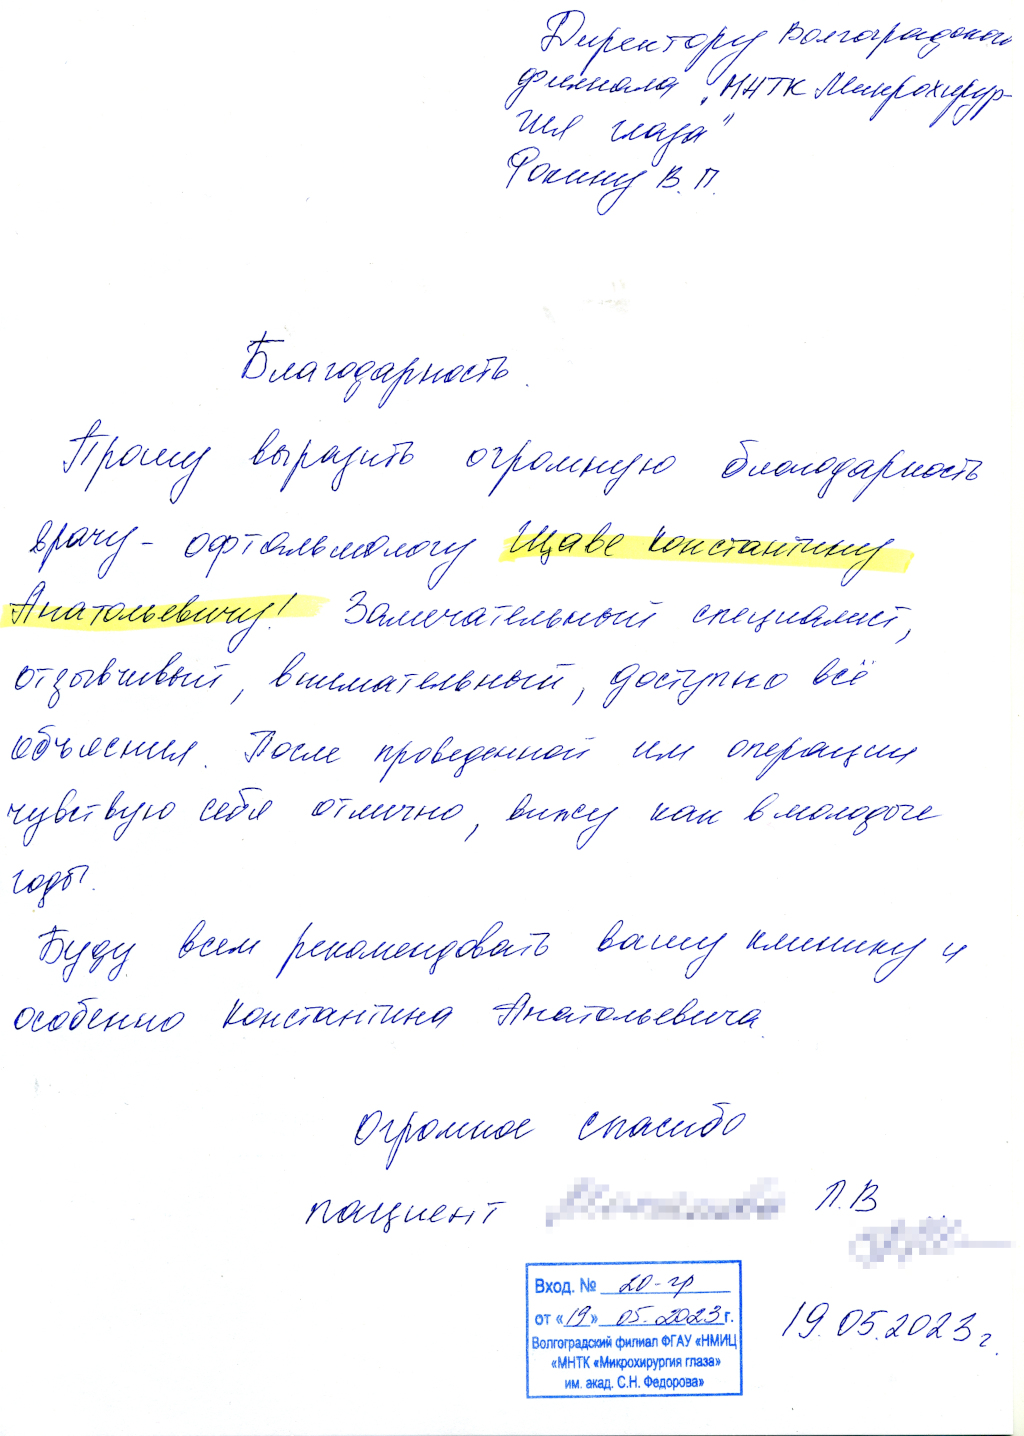 Директору Волгоградского
филиала "МНТК Микрохирур-
гия глаза"
Фокину В.П.
Благодарность.
Прошу выразить огромную благодарность
врачу - офтальмологу Щаве Константину
Анатольевичу! Замечательный специалист,
отзывчивый, внимательный, доступно всё
объяснил. После проведенной им операции
чувствую себя отлично, вижу как в молодые
годы.
Буду всем рекомендовать вашу клинику и
особенно Константина Анатольевича
Огромное спасибо
пациент Л.В
Вход. № 20-гр
от «19» 05. 2023 г.
Волгоградский филиал ФГАУ «НМИЦ
«МНТК «Микрохирургия глаза»
им. акад. С.Н. Федорова»
19.05.2023 г.